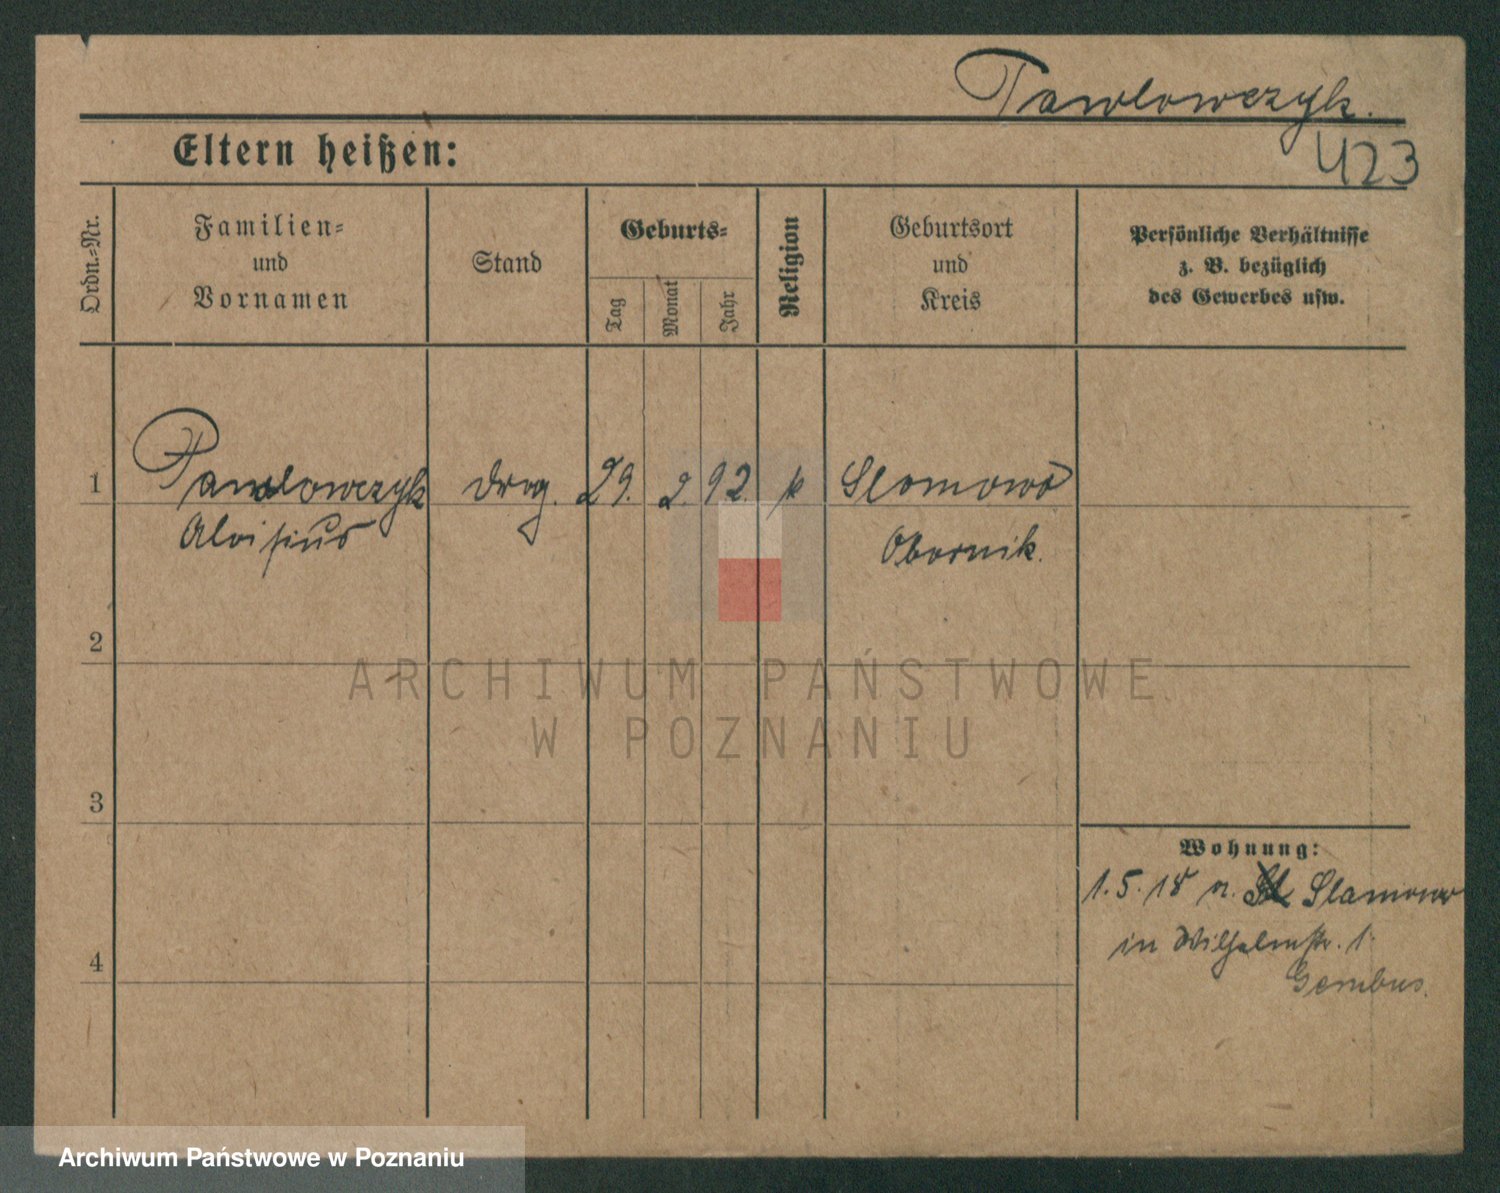 Pawlowczyk.
423
Eltern heißen:
Ordn.-Nr.
Familien-
und
Vornamen
Stand
Geburts-
Tag
Monat
Jahr
Religion
Geburtsort
und
Kreis
Persönliche Verhältnisse
z. B. bezüglich
des Gewerbes usw.
1
Pawlowczyk
Aloisius
Drog.
29.
2.
92.
k
Slomowo
Obornik.
2
3
4
Wohnung:
1.5.18 v. Slamowo
in Wilhelmstr. 1
Gembus.
ARCHIWUM PAŃSTWOWE
W POZNANIU
Archiwum Państwowe w Poznaniu